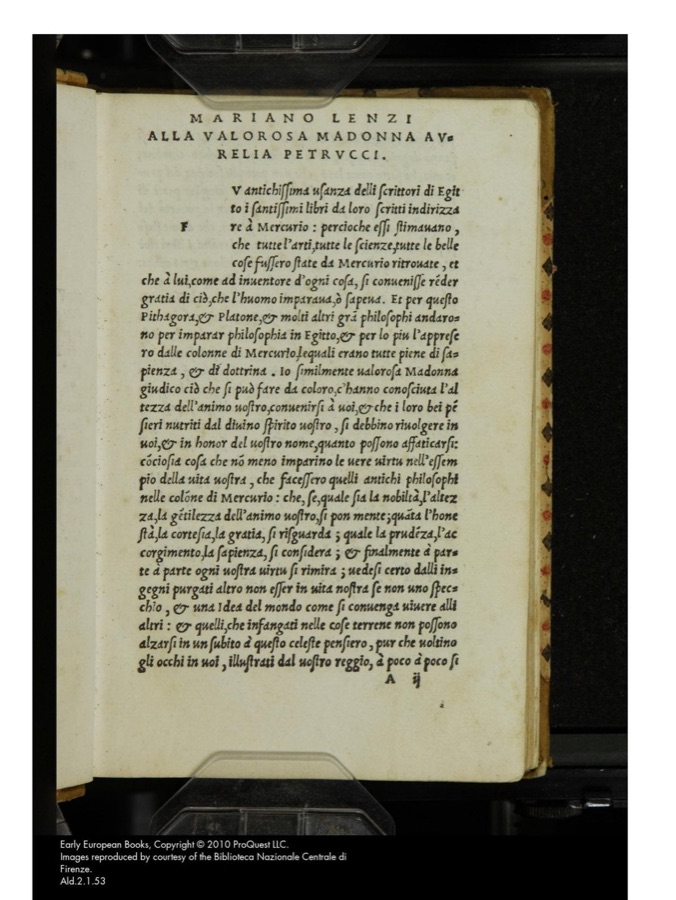 MARIANO LENZI
ALLA VALOROSA MADONNA AV=
RELIA PETRVCCI.
F
V antichiſſima uſanza delli ſcrittori di Egit
to i ſantiſſimi libri da loro ſcritti indirizza
re à Mercurio : percioche eſſi ſtimauano ,
che tutte l'arti,tutte le ſcienze,tutte le belle
coſe fuſſero ſtate da Mercurio ritrouate , et
che à lui,come ad inuentore d'ogni coſa, ſi conueniſſe rēder
gratia di ciò,che l'huomo imparaua,ò ſapeua. Et per queſto
Pithagora,& Platone,& molti altri grā philoſophi andaro=
no per imparar philoſophia in Egitto,& per lo piu l'appreſe
ro dalle colonne di Mercurio,lequali erano tutte piene di ſa=
pienza , & di dottrina . Io ſimilmente ualoroſa Madonna
giudico ciò che ſi può fare da coloro,c'hanno conoſciuta l'al
tezza dell'animo uoſtro,conuenirſi à uoi,& che i loro bei pē
ſieri nutriti dal diuino ſpirito uoſtro , ſi debbino riuolgere in
uoi,& in honor del uoſtro nome,quanto poſſono affaticarſi:
cōcioſia coſa che nō meno imparino le uere uirtu nell'eſſem
pio della uita uoſtra , che faceſſero quelli antichi philoſophi
nelle colōne di Mercurio : che, ſe,quale ſia la nobiltà,l'altez
za,la gētilezza dell'animo uoſtro,ſi pon mente;quāta l'hone
ſtà,la corteſia,la gratia, ſi riſguarda ; quale la prudēza,l'ac
corgimento,la ſapienza, ſi conſidera ; & finalmente à par=
te à parte ogni uoſtra uirtu ſi rimira ; uedeſi certo dalli in=
gegni purgati altro non eſſer in uita noſtra ſe non uno ſpec=
chio , & una Idea del mondo come ſi conuenga uiuere alli
altri : & quelli,che infangati nelle coſe terrene non poſſono
alzarſi in un ſubito à queſto celeſte penſiero , pur che uoltino
gli occhi in uoi , illuſtrati dal uoſtro reggio, à poco à poco ſi
A ij
Early European Books, Copyright © 2010 ProQuest LLC.
Images reproduced by courtesy of the Biblioteca Nazionale Centrale di
Firenze.
Ald.2.1.53